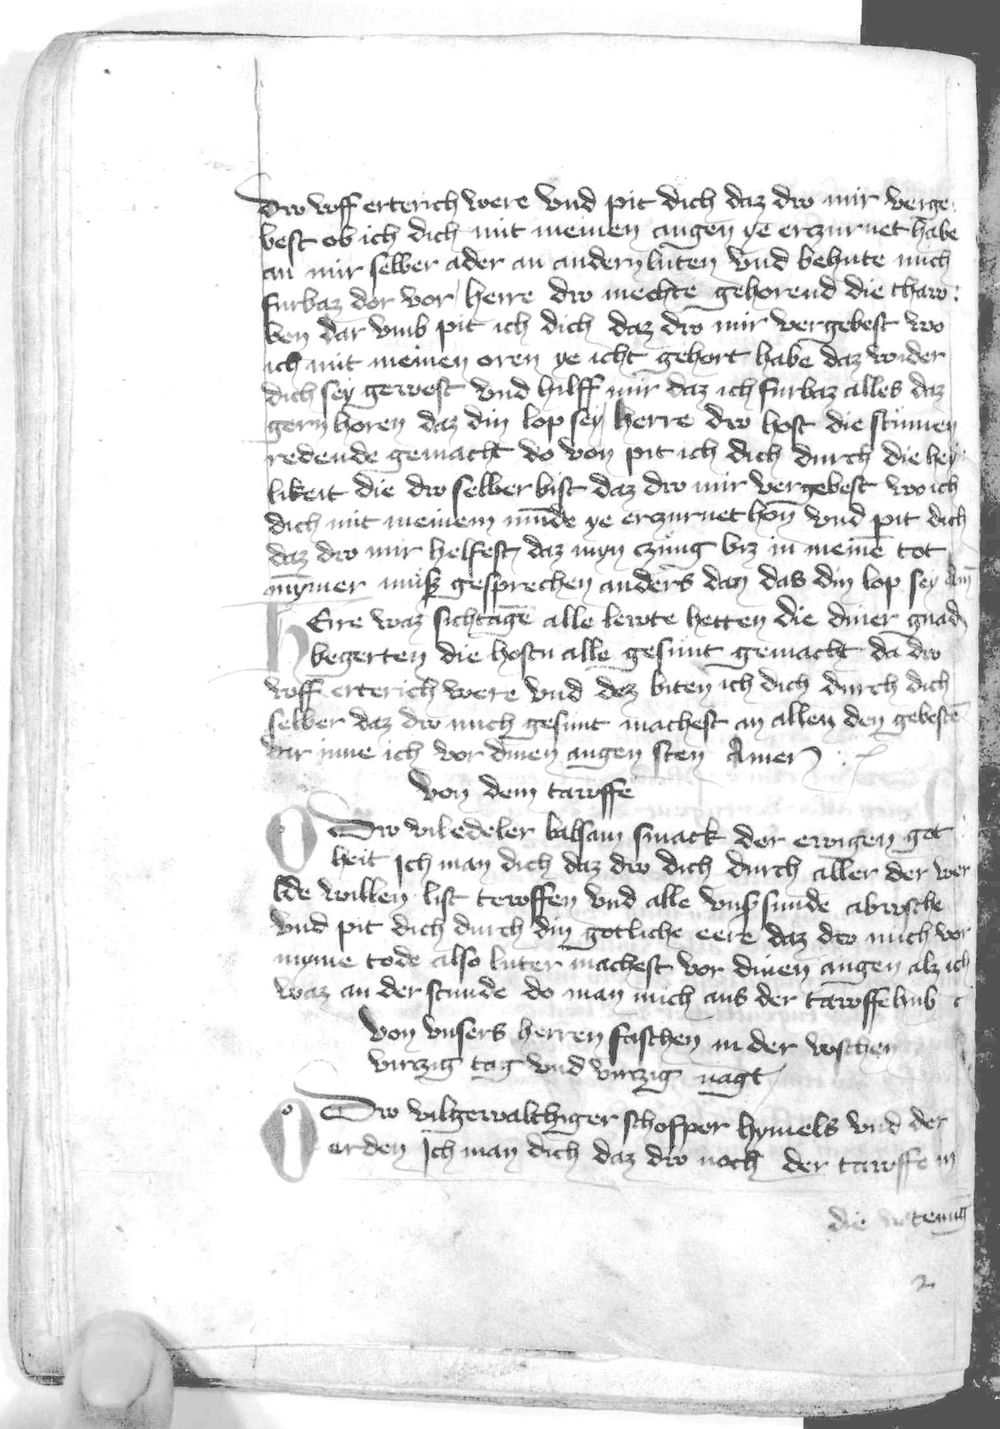 dw vff erterich were vnd pit dich daz dw mir verge
best ob ich dich mit meinen augen ye erczurnet habe
an mir selber ader an andern luten vnd behute mich
furbaz dor vor herre dw mechte gehorend die thaw
ben dar vmb pit ich dich daz dw mir vergebest wo
ich mit meinen oren ye icht gehort habe daz wider
dich sey gewest vnd hilff mir daz ich furbaz alles daz
gern horen daz din lop sey herre dw host die stimmen
redende gemacht do von pit ich dich durch die hey
likeit die dw selber bist daz dw mir vergebest wo ich
dich mit meinem munde ye erczurnet hon vnd pit dich
daz dw mir helfest daz myn czung biz in meine tot
nymmer musz gesprechen anders dan das din lop sey Am
HErre waz sichtage alle lewte hetten die diner gnad
begerten die hostu alle gesunt gemacht da dw
vff erterich were vnd dez biten ich dich durch dich
selber daz dw mich gesunt machest an allen den gebesten
dar inne ich vor dinen augen sten Amen
von dem tawffe
O Dw vil edeler balsam smack der ewigen got
heit Ich man dich daz dw dich durch aller der wer
lde willen list tewffen vnd alle vnsz sunde abwsche
vnd pit dich durch din gotliche eere daz dw mich vor
myme tode also luter machest vor dinen augen alz ich
waz an der stunde do man mich aus der tawffe hub
von vnsers herren fasten in der wsten
virczig tag vnd virczig nagt
O Dw vilgewalthiger schofper hymels vnd der
erden Ich man dich daz dw noch der tawffe in
die wstenung
2